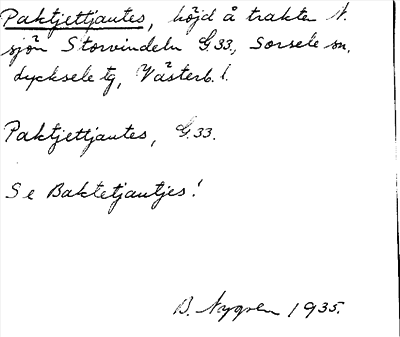 Paktjettjautes, höjd å trakten N.
sjön Storvindeln G.33, Sorsele sn,
Lycksele tg, Västerb. l.
Paktjettjautes, G.33.
Se Baktetjautjes!
B. Nygren 1935.